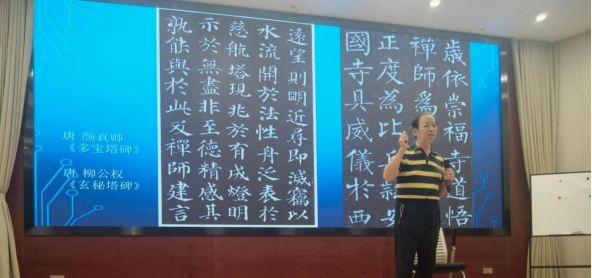 唐 颜真卿
《多宝塔碑》
唐 柳公权
《玄秘塔碑》
遠望則明近尋即滅竊以
水流開於法性舟泛表於
慈航塔現兆於有成燈明
示於無盡非至德精感其
孰能與於此及禪師建言
歲依崇福寺道悟
禪師為
正度為比丘隸安
國寺具威儀於西